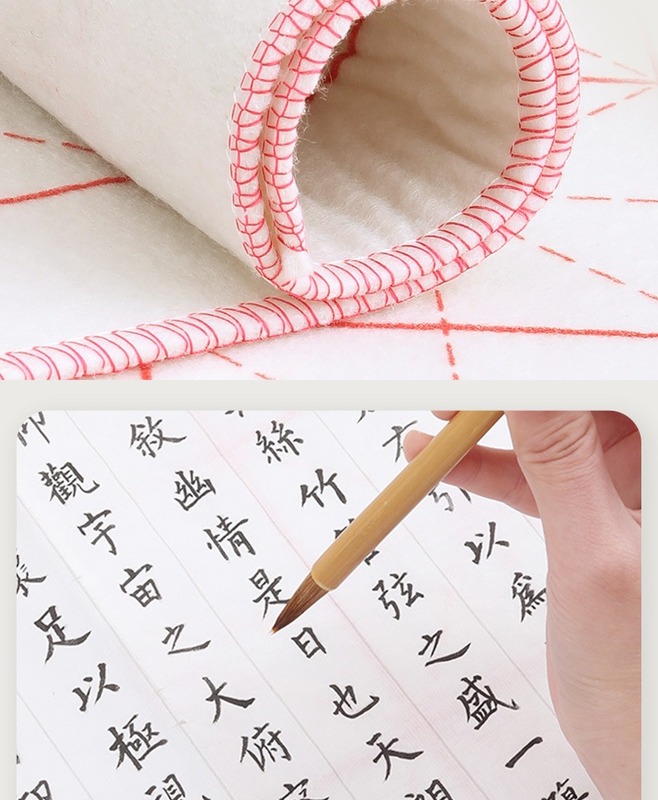 以爲
絲竹弦之盛一
敘幽情是日也天
觀宇宙之大俯
足以極